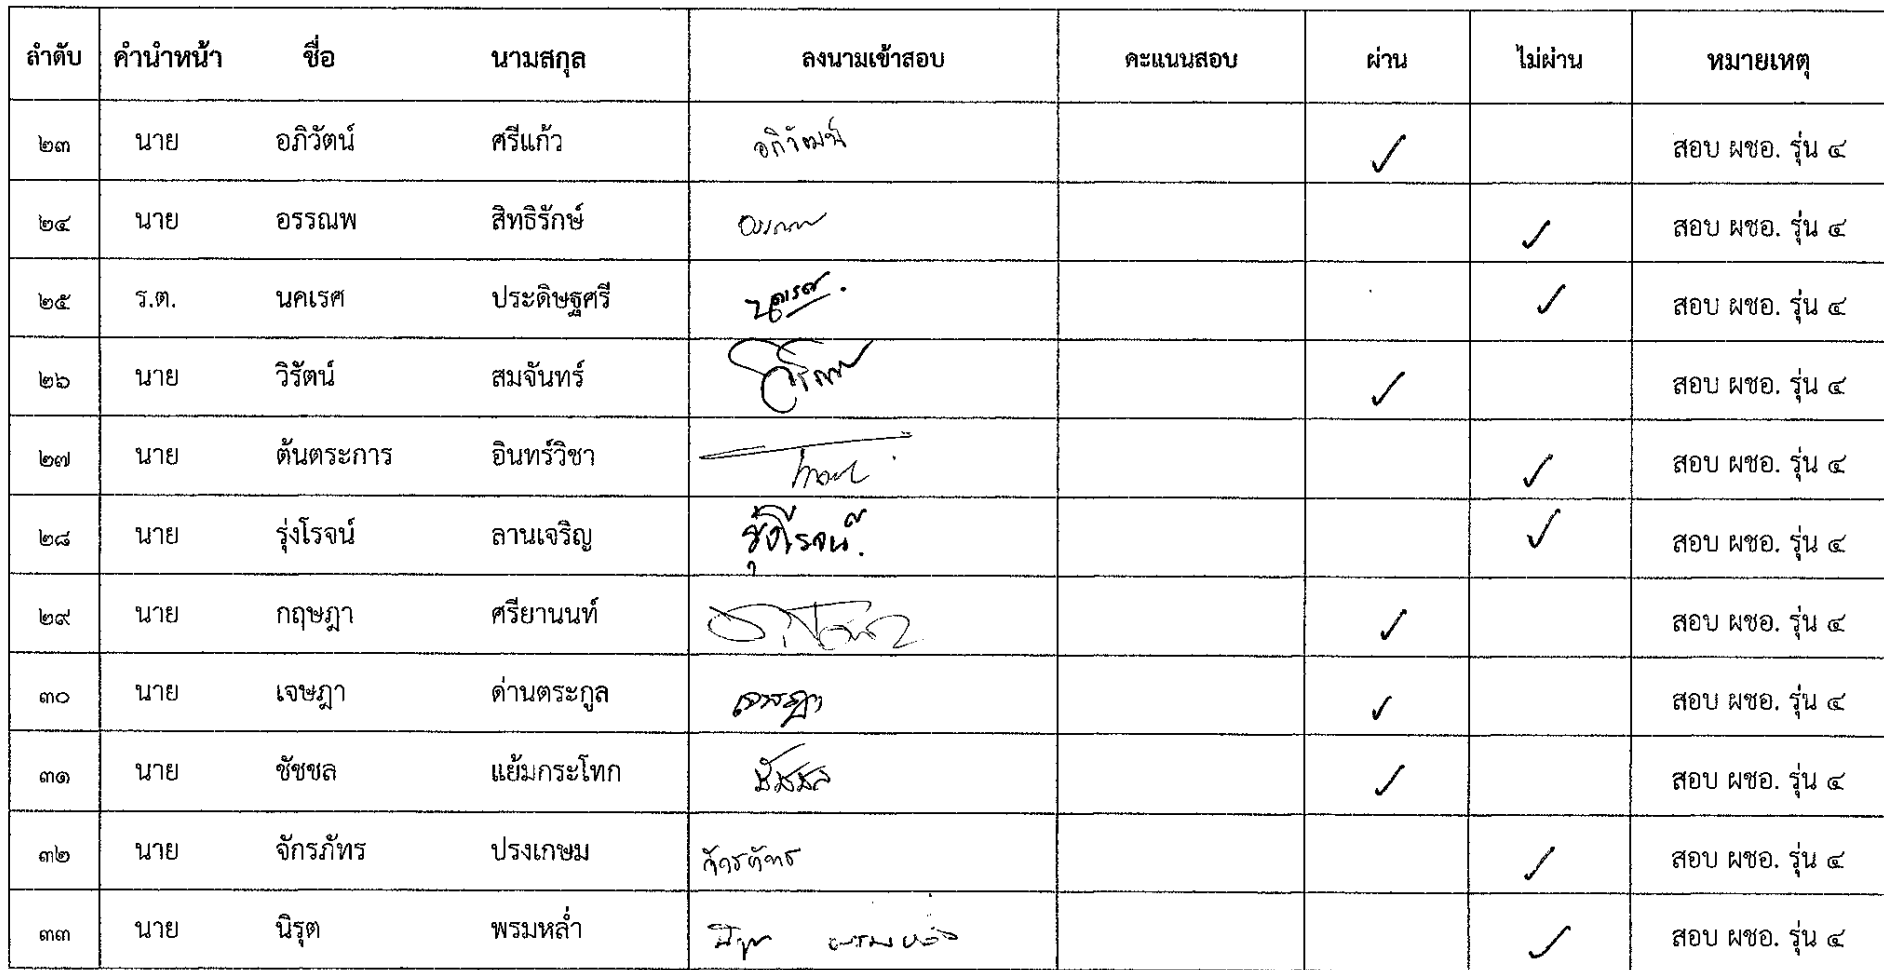 ลำดับ คำนำหน้า ชื่อ นามสกุล ลงนามเข้าสอบ คะแนนสอบ ผ่าน ไม่ผ่าน หมายเหตุ
๒๓ นาย อภิวัตน์ ศรีแก้ว อภิวัฒน์ ✓ สอบ ผชอ. รุ่น ๔
๒๔ นาย อรรณพ สิทธิรักษ์ อรรณพ ✓ สอบ ผชอ. รุ่น ๔
๒๕ ร.ต. นคเรศ ประดิษฐศรี นคเรศ ✓ สอบ ผชอ. รุ่น ๔
๒๖ นาย วิรัตน์ สมจันทร์ ✓ สอบ ผชอ. รุ่น ๔
๒๗ นาย ต้นตระการ อินทร์วิชา ✓ สอบ ผชอ. รุ่น ๔
๒๘ นาย รุ่งโรจน์ ลานเจริญ รุ่งโรจน์ ✓ สอบ ผชอ. รุ่น ๔
๒๙ นาย กฤษฎา ศรียานนท์ ✓ สอบ ผชอ. รุ่น ๔
๓๐ นาย เจษฎา ด่านตระกูล เจษฎา ✓ สอบ ผชอ. รุ่น ๔
๓๑ นาย ชัชชล แย้มกระโทก ชัชชล ✓ สอบ ผชอ. รุ่น ๔
๓๒ นาย จักรภัทร ปรงเกษม จักรภัทร ✓ สอบ ผชอ. รุ่น ๔
๓๓ นาย นิรุต พรมหล่ำ นิรุต พรมหล่ำ ✓ สอบ ผชอ. รุ่น ๔